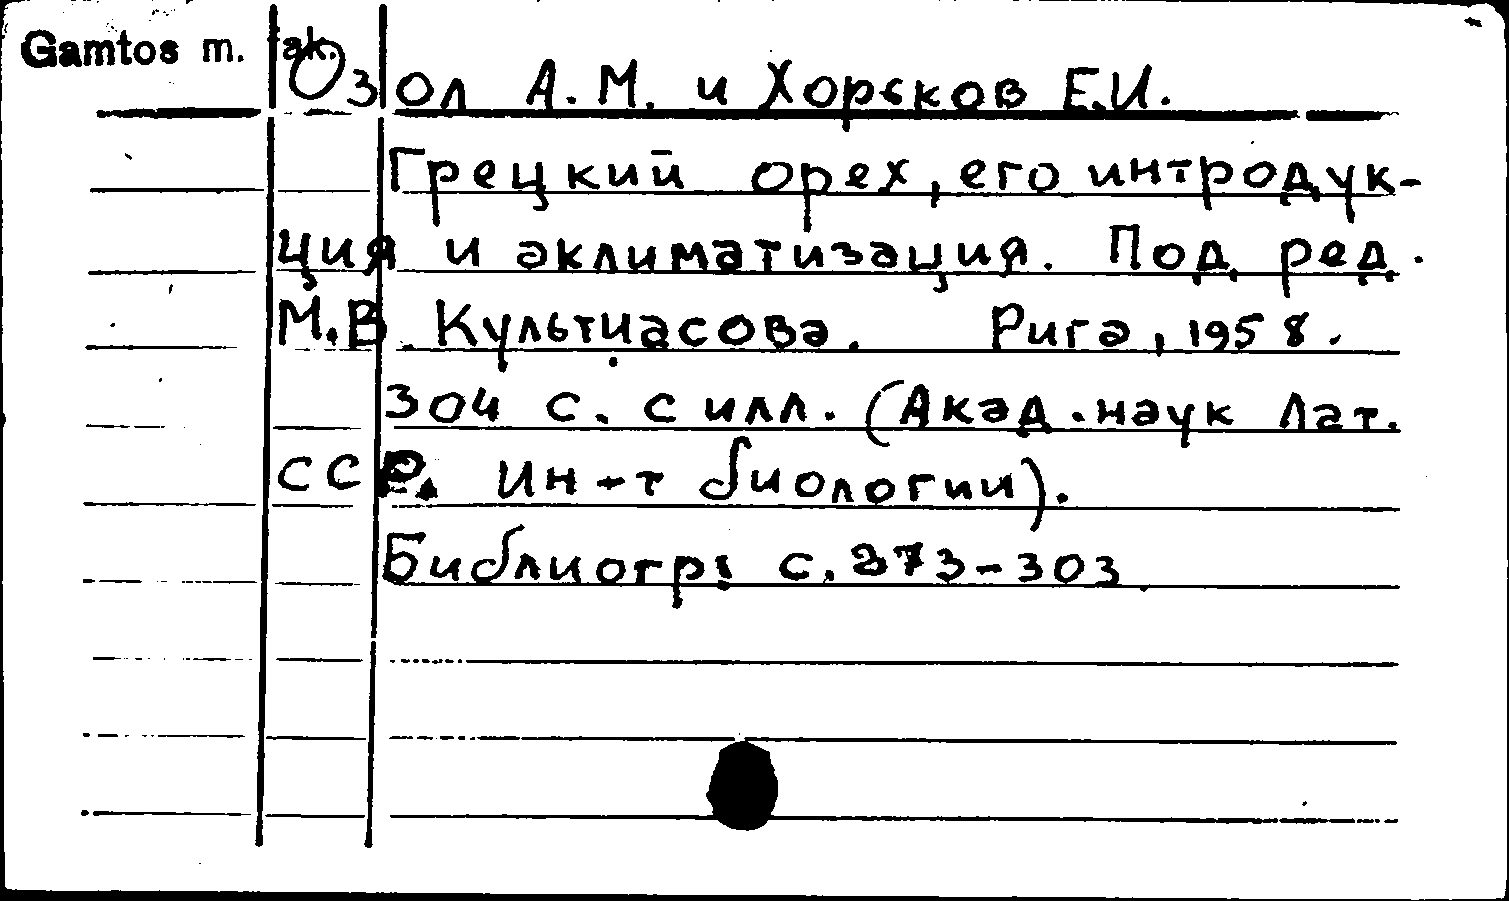 Gamtos m. fak.
Озол А.М. и Хорьков Е.И.
Грецкий орех, его интродук-
ция и аклиматизация. Под ред.
М.В. Культиасова. Рига, 1958.
304 с. с илл. (Акад. наук Лат.
ССР. Ин-т биологии).
Библиогр: с. 273-303